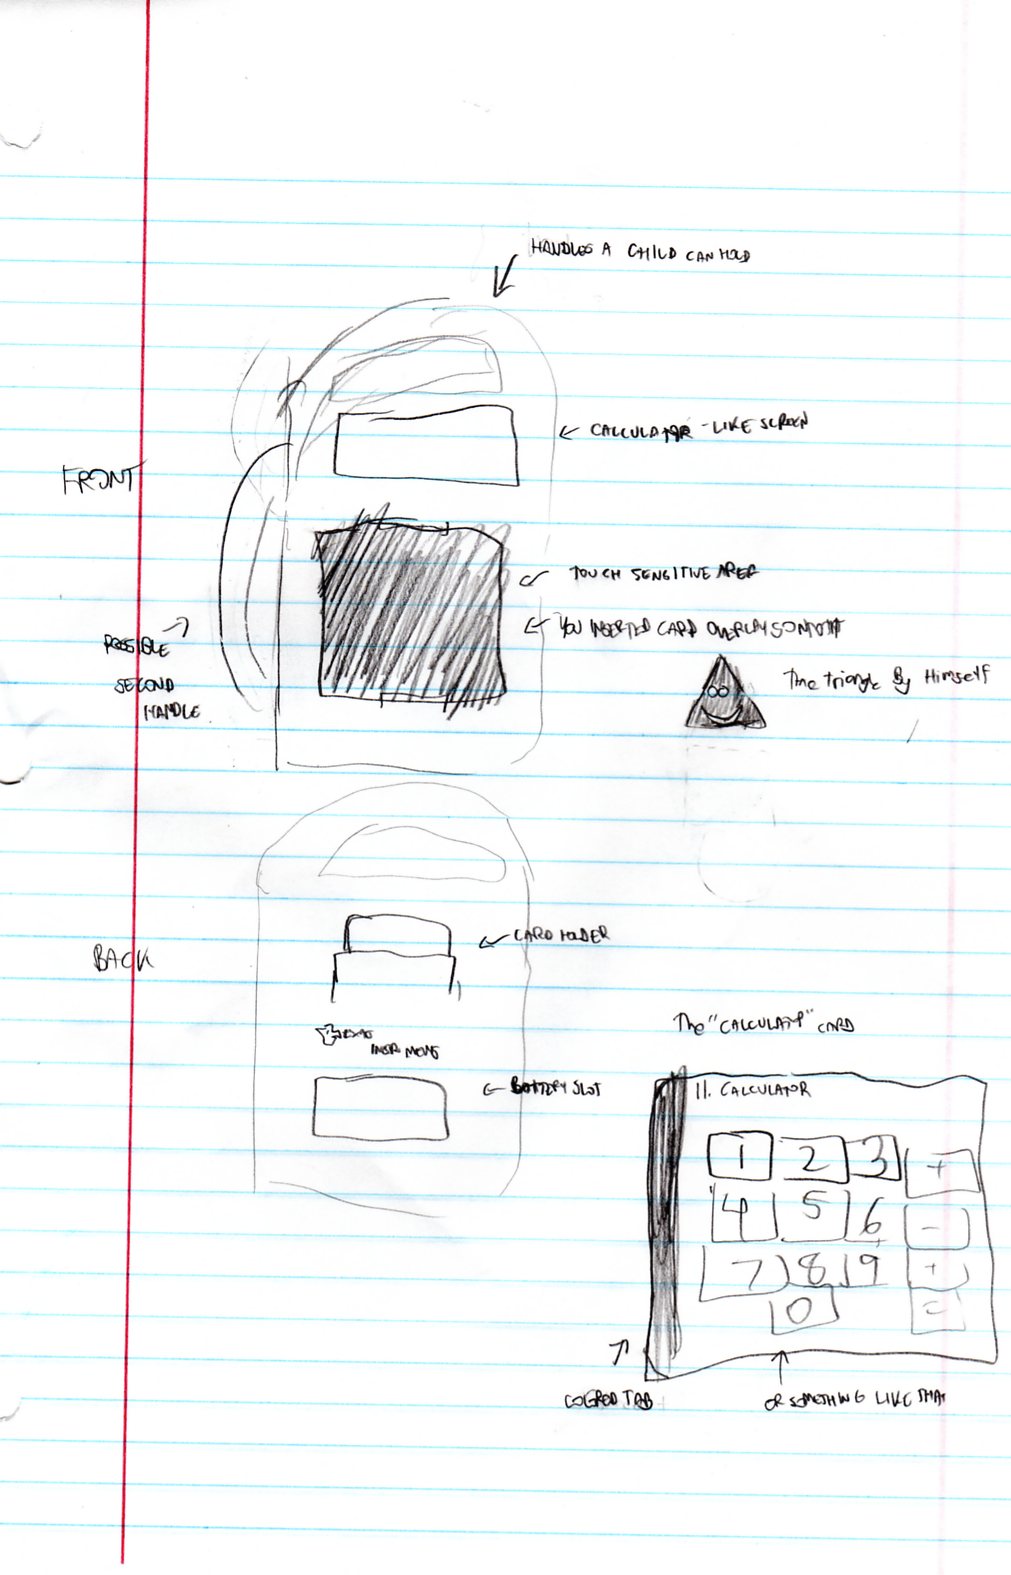 HANDLES A CHILD CAN HOLD
CALCULATOR-LIKE SCREEN
FRONT
TOUCH SENSITIVE AREA
YOU INSERTED CARD OVERLAYS ONTO IT
POSSIBLE
SECOND
HANDLE
The triangle By Himself
CARD HOLDER
BACK
BATTERY SLOT
The "CALCULATOR" CARD
11. CALCULATOR
1 2 3 +
4 5 6 -
7 8 9 +
0 =
TAB
OR SOMETHING LIKE THAT